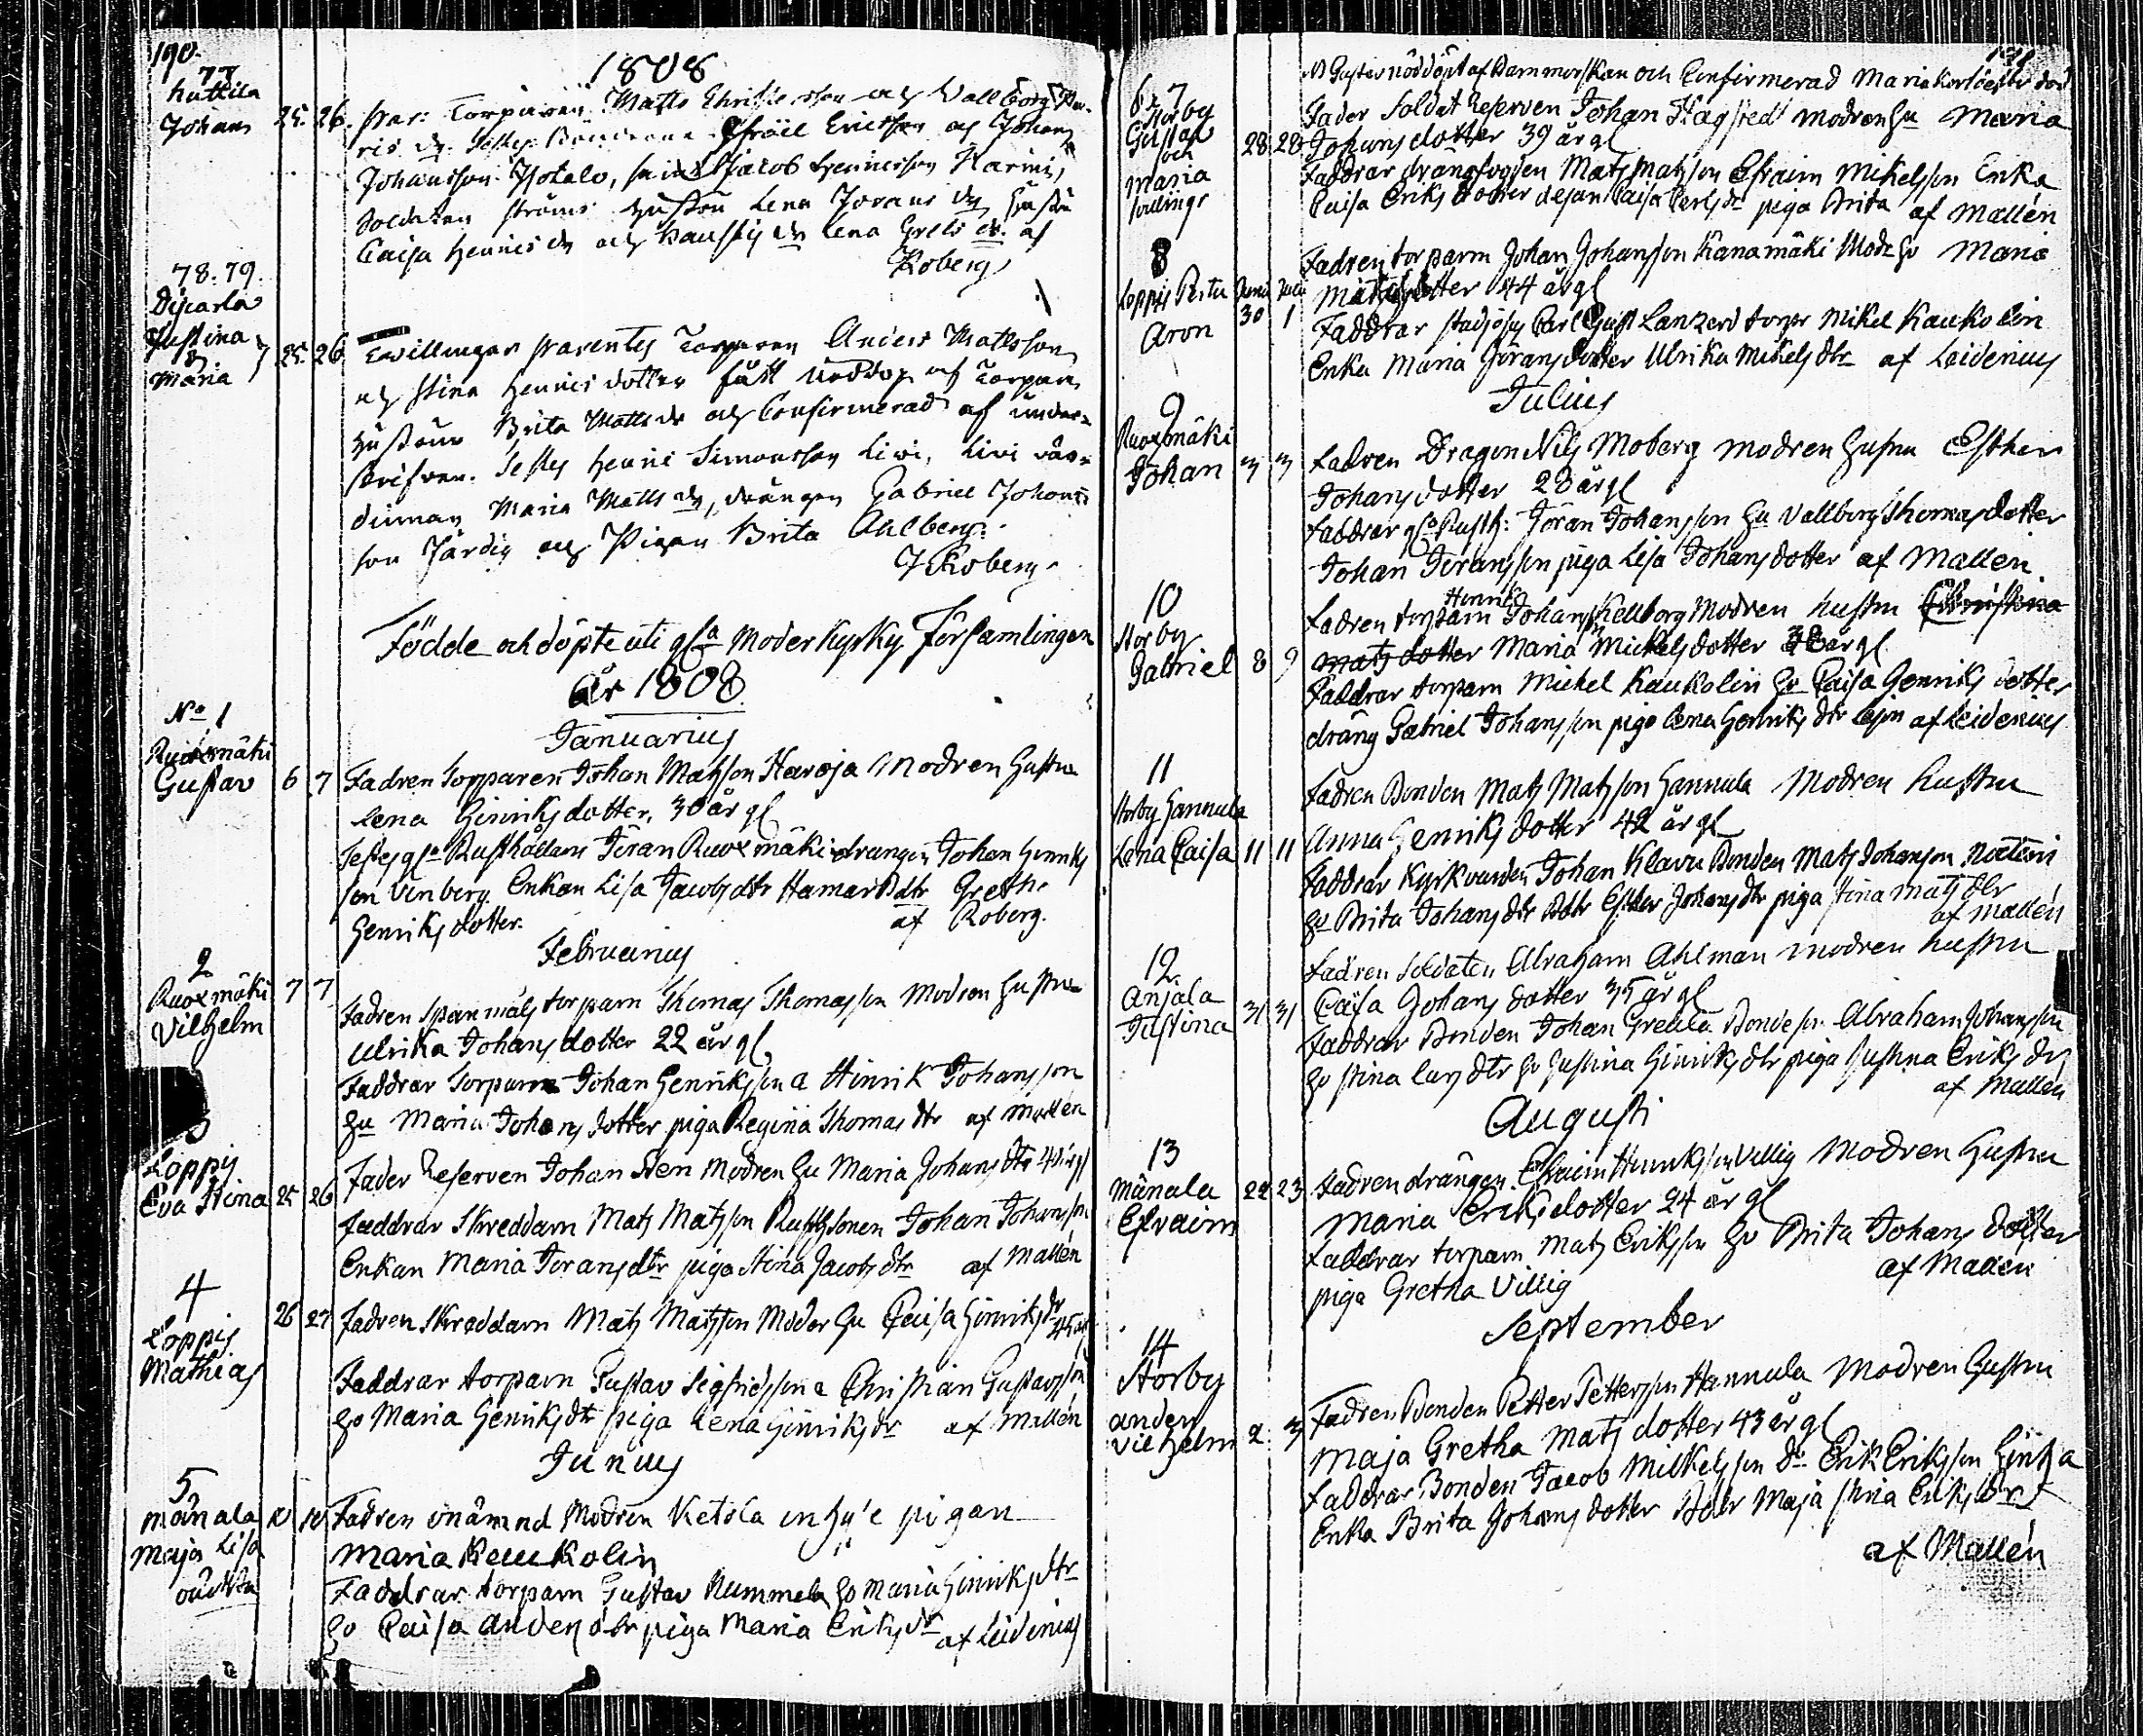 190.
1808
77
Huttila
Johan 25. 26. Par: Torparen Matts Christersson och Vallborg
ris dr. Testes Bönderne Israel Ericsson och Johan
Johansson Jacob Hennicsson
Soldaten Ströms hustru Lena Jörans dr,
Caisa Hennics dr och Lena Grels dr. af
Koberg
78. 79.
Justina
&
Maria 25. 26. Twillingar Parentes Torparen Anders Mattsson
och Stina Hennics dotter fått nöddop af Torpare
hustrun Brita Matts dr och Confirmerad af under-
skrifven. Testes Henric Simonsson Liwi, Liwi vär-
dinnan Maria Matts dr, drängen Gabriel Johans
son Järdig och Pigan Brita Ahlberg.
J Koberg
Födde och döpte uti gla Moderkyrks Församlingen
År 1808
Januarius
No 1
Ruoxmäki
Gustav 6 7 Fadren Torparen Johan Matsson Haroja Modren Hustru
Lena Hinriksdotter, 30 år gl
Testes Rusthållarn Jöran Ruoxmäki drängen Johan Henriks
son Vinberg Enkan Lisa Jacobsdtr Gretha
Henriksdotter. af Koberg.
Februarius
2
Ruoxmäki 7 7
Vilhelm
Fadren Spanmäls torparn Thomas Thomasson Modren Hustru
Ulrika Johansdotter 22 år gl
Faddrar Torparne Johan Henriksson a Hinrik Johansson
Hu Maria Johans dotter piga Regina Thomas dtr af Mallén
3
Loppis
Eva Stina 25 26 Fader Reserven Johan Sten Modren Hu Maria Johans dtr
Faddrar Skreddarn Mats Matsson Rusthsonen Johan Johansson
Enkan Maria Jöransdtr piga Stina Jacobsdtr af Mallén
4
Loppis
Mathias 26 27 Fadren Skreddarn Mats Matsson Moder Hu Caisa Hinriksdr 45 år
Faddrar torparn Gustav Sigfridsson a Christian Gustavsson
Hu Maria Henriksdtr piga Lena Hinriksdr af Mallén
Junius
5
Mänala
Maja Lisa
oäckta
Fadren onämnd Modren Ketola inhys'e pigan
Maria Kaukolin
Faddrar torparn Gustav Nummela Hu Maria Hinriksdtr
Hu Caisa Anders dtr piga Maria Eriksdr af Leidenius
191
6 & 7
Storby
Gustav
och
Maria
tvillingr 28 28
N Gustav nöddöpt af Barnmorskan och Confirmerad Maria
Fader Soldat Reserven Johan Hagsted Modren Hu Maria
Johansdotter 39 år gl
Faddrar drängfogden Mats Matsson Efraim Mikelsson Enka
Caisa Eriks dotter piga Brita af Mallén
8
Loppis Pertu Junii Julii
Aron 30 1
Fadren torparn Johan Johansson Kanamäki Modr Hu Maria
Mats dotter 44 år gl
Faddrar Carl Gust torpr Mikel Kaukolin
Enka Maria Jöransdotter Ulrika Mikels dtr af Leidenius
Julius
9
Ruoxmäki
Johan 3 3 Fadren Dragon Nils Moberg Modren Hustru Esther
Johans dotter 28 år gl
Faddrar Rusth: Jöran Johansson Hu Vallborg Thomasdotter
Johan Jöransson piga Lisa Johansdotter af Mallén
10
Storby
Gabriel 8 9
Hinriks
Fadren torparn Johansson Kellborg Modren hustru Christina
Matsdotter Maria Mickelsdotter 38 år gl
Faddrar torparn Mickel Kaukolin Hu Caisa Henriks dotter
dräng Gabriel Johansson piga Lena Henriks dtr af Leidenius
11
Storby Hannula
Lena Caisa 11 11
Fadren Bonden Mats Matsson Hannula Modren hustru
Anna Henriks dotter 42 år gl
Faddrar Kyrkvärden Johan Klavu Bonden Mats Johansson
Hu Brita Johans dtr Esther Johans dtr piga Stina Mats dtr
af Mallén
12
Anjala
Justina 31 31
Fadren Soldaten Abraham Ahlman Modren hustru
Caisa Johans dotter 35 år gl
Faddrar Bonden Johan Bonde son Abraham Johansson
Hu Stina Lars dtr Hu Justina Hinriks dtr piga Justina Eriks dr
af Mallén
Augusti
13
Mänala 22 23
Efraim
Fadren drängen Efraim Hinriksson Villig Modren Hustru
Maria Eriksdotter 24 år gl
Faddrar torparn Mats Eriksson Hu Brita Johans dotter
piga Gretha Villig af Mallén
September
14
Storby
Anders
Vilhelm 2 3
Fadren Bonden Petter Pettersson Hannula Modren Hustru
Maja Gretha Mats dotter 43 år gl
Faddrar Bonden Jacob Mikkelsson do Erik Eriksson
Enka Brita Johans dotter Maja Stina Eriks dr
af Mallén